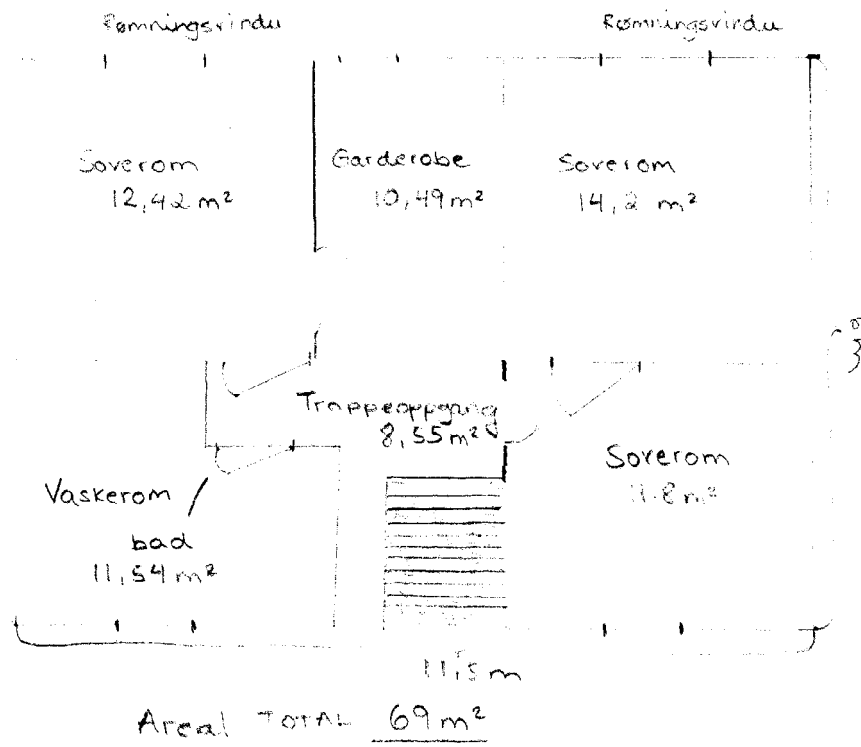 Rømningsvindu
Rømningsvindu
Soverom
12,42 m²
Garderobe
10,49 m²
Soverom
14,2 m²
Trappeoppgang
8,55 m²
Soverom
11.8 m²
Vaskerom
bad
11,54 m²
11,5 m
Areal TOTAL 69 m²